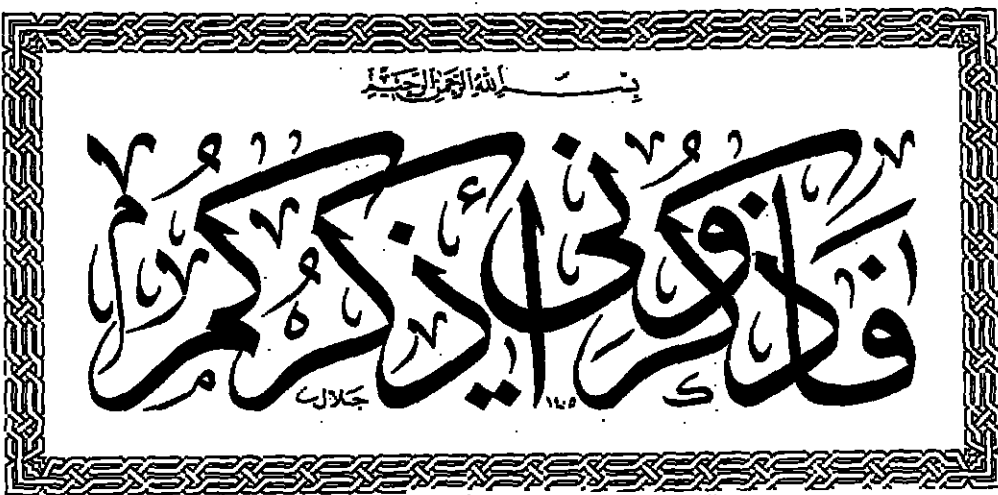 بسم الله الرحمن الرحيم
فاذكروني أذكركم
جلال ١٤٠٥